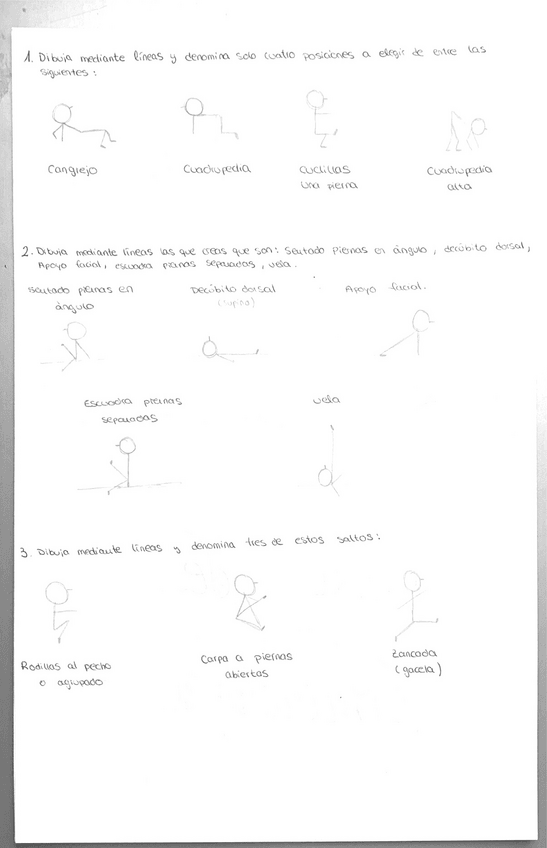 1. Dibuja mediante líneas y denomina solo cuatro posiciones a elegir de entre las
siguientes:
Cangrejo
Cuadrupedia
Cuclillas
una pierna
Cuadrupedia
alta
2. Dibuja mediante líneas las que creas que son: Sentado piernas en ángulo, decúbito dorsal,
Apoyo facial, escuadra piernas separadas, vela.
Sentado piernas en
ángulo
Decúbito dorsal
(supino)
Apoyo facial.
Escuadra piernas
separadas
vela
3. Dibuja mediante líneas y denomina tres de estos saltos:
Rodillas al pecho
o agrupado
Carpa a piernas
abiertas
Zancada
(gacela)